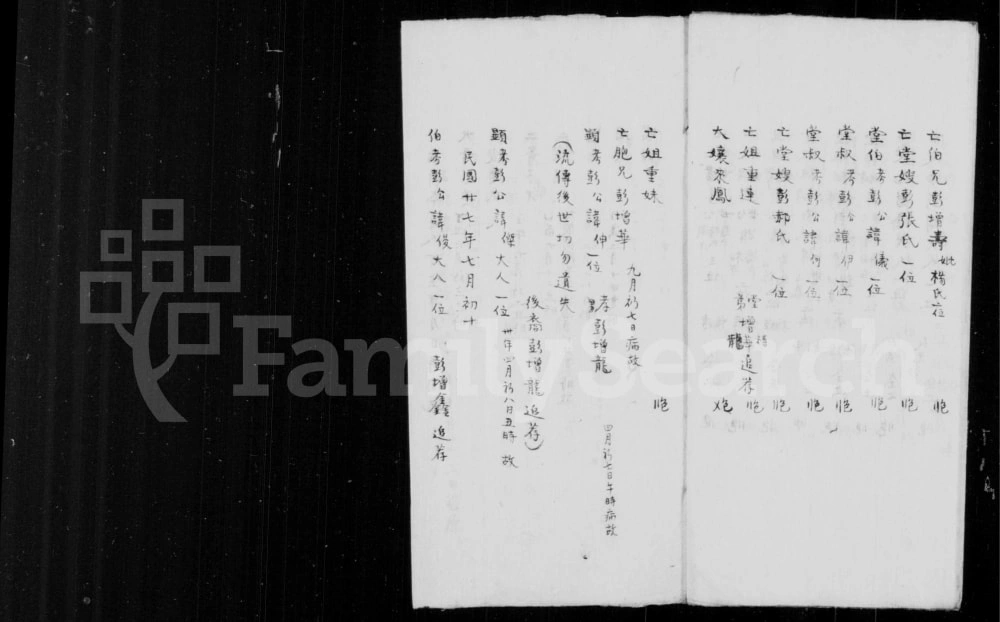 亡伯兄彭增壽妣楊氏二位 㤙
亡堂嫂彭張氏一位 㤙
堂伯考彭公諱儀一位 㤙
堂叔考彭公諱伊一位 㤙
堂叔考彭公諱何一位 㤙
亡堂嫂彭郝氏一位 㤙
亡姐重連
堂弟增華龍追荐 㤙
大孃
鳳
亡姐重妹 㤙
亡胞兄彭增華 九月初七日病故
顯考彭公諱伸一位 孝男彭增龍 四月初七日午時病故
(流傳後世切勿遺失
後裔彭增龍追荐)
顯考彭公諱傑大人一位 卅年四月初八日丑時故
民國廿七年七月初十
伯考彭公諱俊大人一位 彭增鑫追荐
FamilySearch